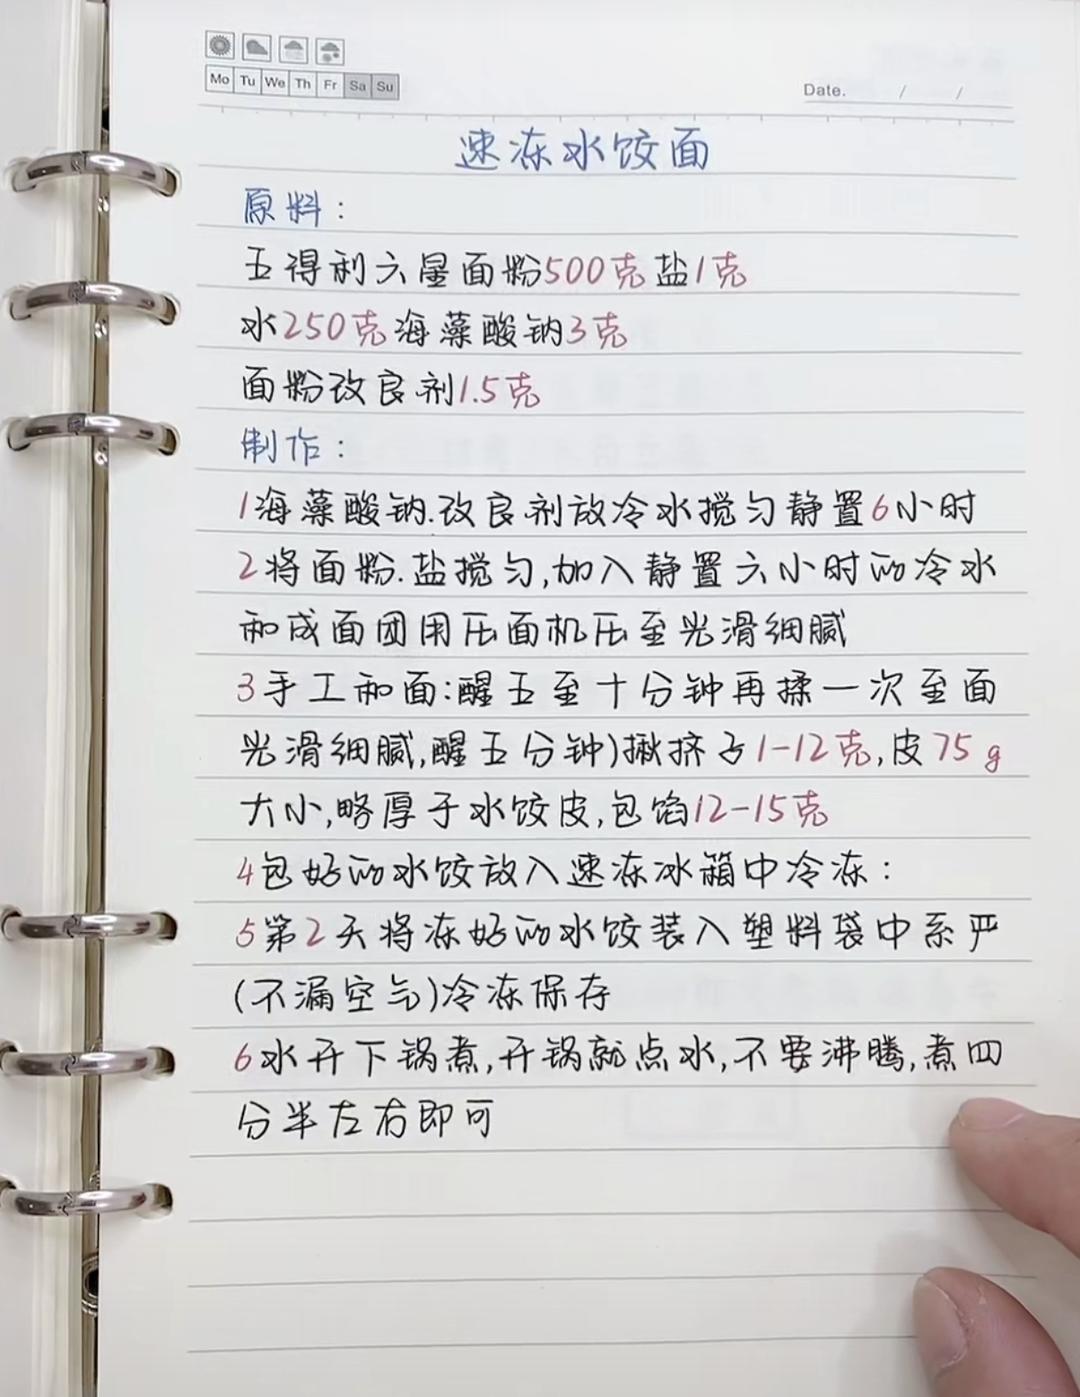 Mo Tu We Th Fr Sa Su
Date. / /
速冻水饺面
原料:
五得利六星面粉500克盐1克
水250克海藻酸钠3克
面粉改良剂1.5克
制作:
1海藻酸钠.改良剂放冷水搅匀静置6小时
2将面粉.盐搅匀,加入静置六小时的冷水
和成面团用压面机压至光滑细腻
3手工和面:醒五至十分钟再揉一次至面
光滑细腻,醒五分钟)揪挤占1-12克,皮75g
大小,略厚于水饺皮,包馅12-15克
4包好的水饺放入速冻冰箱中冷冻:
5第2天将冻好的水饺装入塑料袋中系严
(不漏空气)冷冻保存
6水开下锅煮,开锅就点水,不要沸腾,煮四
分半左右即可